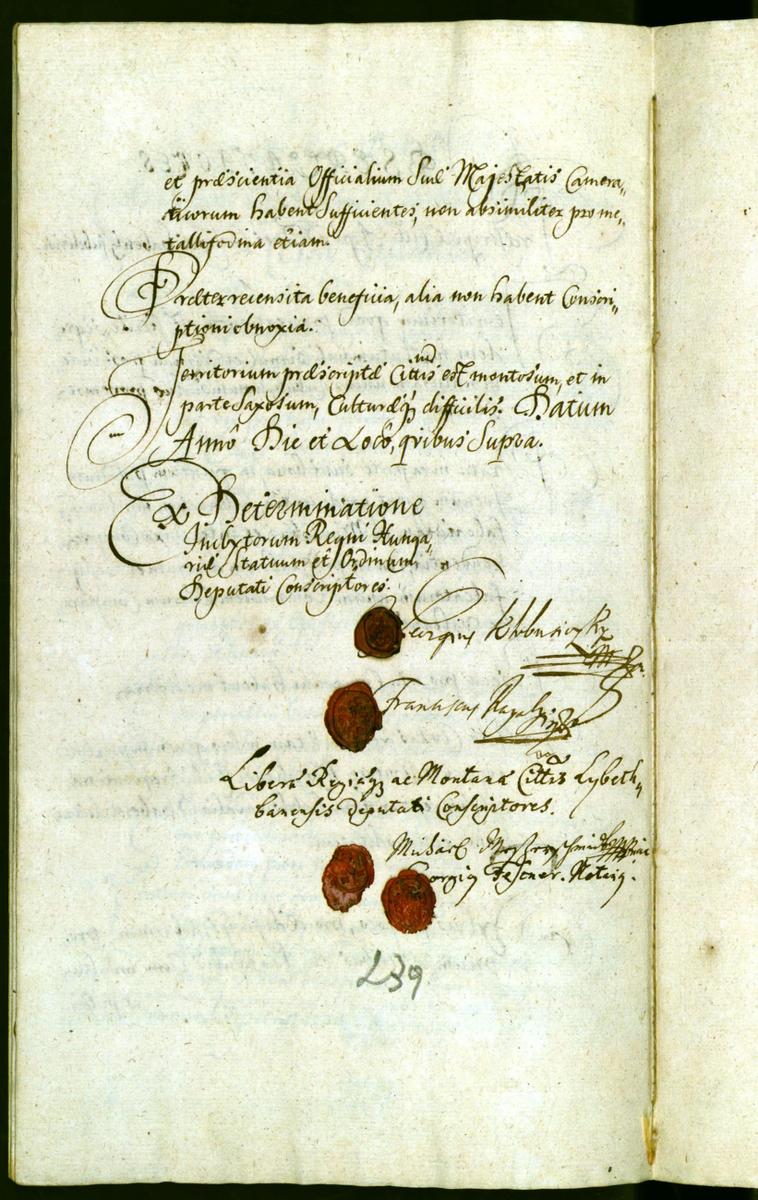 et præscientia Officialium Suæ Majestatis Camera„
ticorum habent Sufficientes, non absimiliter pro me„
tallifodina etiam.
Præter recensita beneficia, alia non habent Conscri„
ptioni obnoxia.
Territorium præscriptæ Cittis est montosum, et in
parte Saxosum, Culturæq difficilis. Datum
Anno Die et Loco, quibus Supra.
Ex Determinatione
Inclytorum Regni Hunga„
riæ Statuum et Ordinum
Deputati Conscriptores.
Georgius
Franciscus
Liberæ Regiæq ac Montanæ Cittis Lybeth„
banensis deputati Conscriptores.
Michael
Georgig Notarig.
239